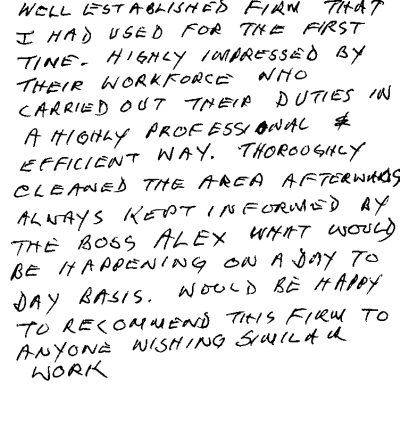 WELL ESTABLISHED FIRM THAT
I HAD USED FOR THE FIRST
TIME. HIGHLY IMPRESSED BY
THEIR WORKFORCE WHO
CARRIED OUT THEIR DUTIES IN
A HIGHLY PROFESSIONAL &
EFFICIENT WAY. THOROUGHLY
CLEANED THE AREA AFTERWARDS
ALWAYS KEPT INFORMED BY
THE BOSS ALEX WHAT WOULD
BE HAPPENING ON A DAY TO
DAY BASIS. WOULD BE HAPPY
TO RECOMMEND THIS FIRM TO
ANYONE WISHING SIMILAR
WORK